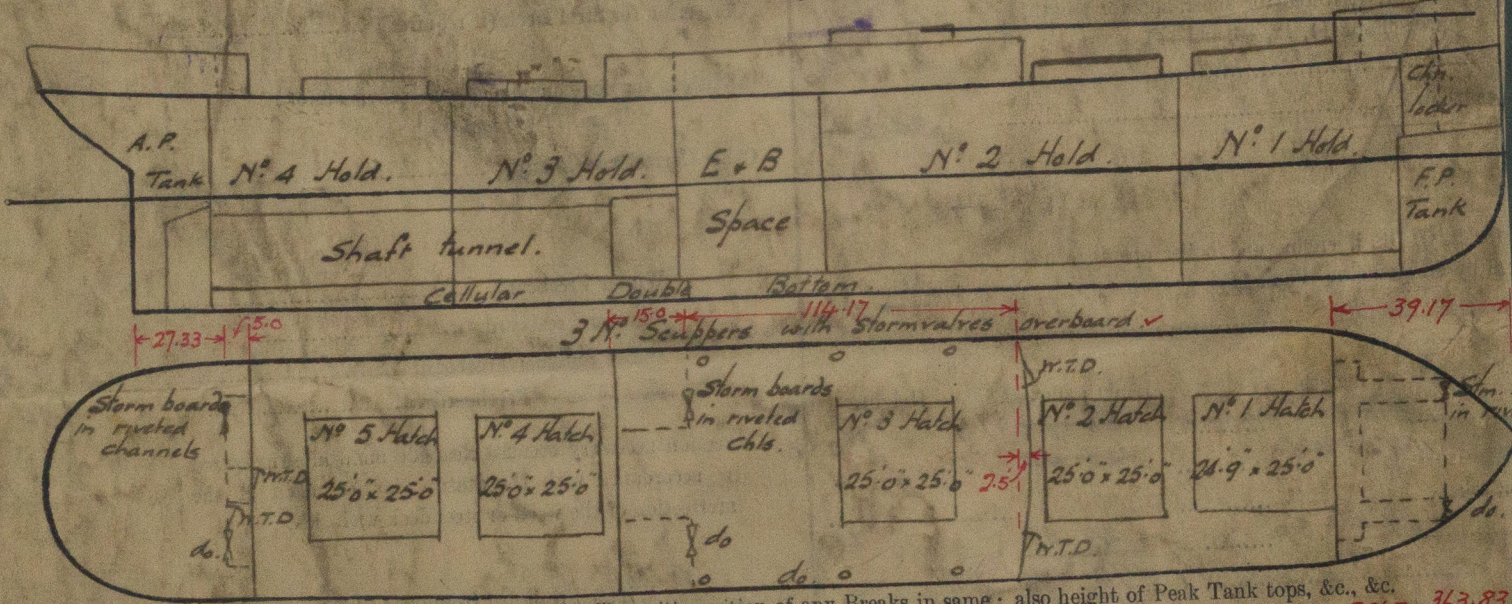 Chn.
locker
A.P.
Tank
Nº 4 Hold.
Nº 3 Hold.
E & B
Space
Nº 2 Hold.
Nº 1 Hold.
F.P.
Tank
Shaft tunnel.
Cellular Double Bottom.
27.33
5.0
15.0
114.17
39.17
3 Nº Scuppers with Stormvalves overboard ✓
Storm boards
in riveted
channels
W.T.D
W.T.D
do.
Nº 5 Hatch
25'0" x 25'0"
Nº 4 Hatch
25'0" x 25'0"
Storm boards
in riveted
chls.
do
Nº 3 Hatch
25'0" x 25'0"
2.5
W.T.D.
W.T.D.
Nº 2 Hatch
25'0" x 25'0"
Nº 1 Hatch
24'9" x 25'0"
Stm.
in
do.
do.
of any Breaks in same; also height of Peak Tank tops, &c., &c.